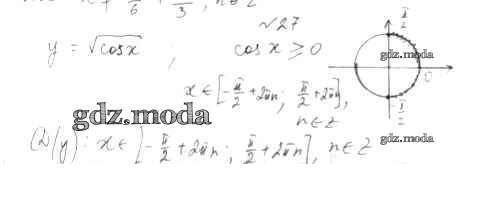 π/6 + π/3, n∈Z
№27
y = √cosx ; cosx ≥ 0
π/2
gdz.moda
0
-π/2
x ∈ [-π/2 + 2πn; π/2 + 2πn],
n∈Z
gdz.moda
D(y): x ∈ [-π/2 + 2πn; π/2 + 2πn], n∈Z